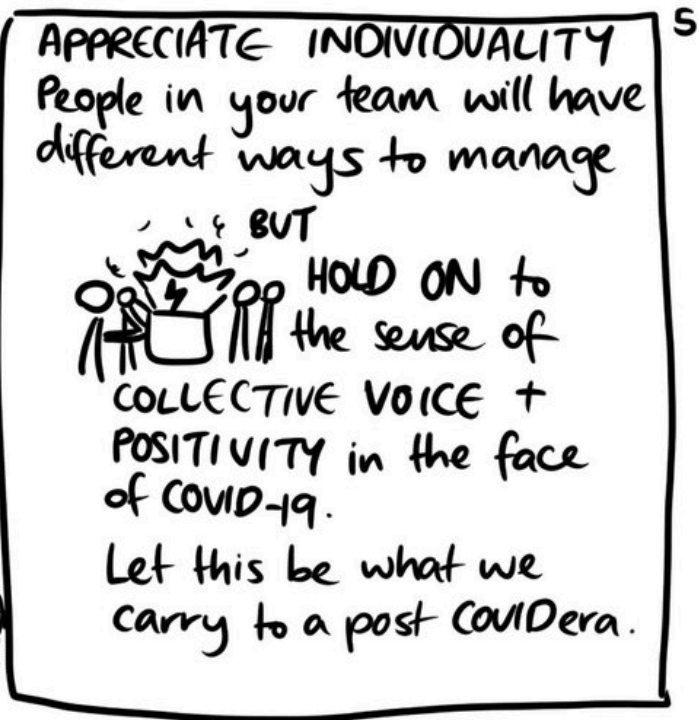 APPRECIATE INDIVIDUALITY
People in your team will have
different ways to manage
BUT
HOLD ON to
the sense of
COLLECTIVE VOICE +
POSITIVITY in the face
of COVID-19.
Let this be what we
carry to a post COVIDera.
S